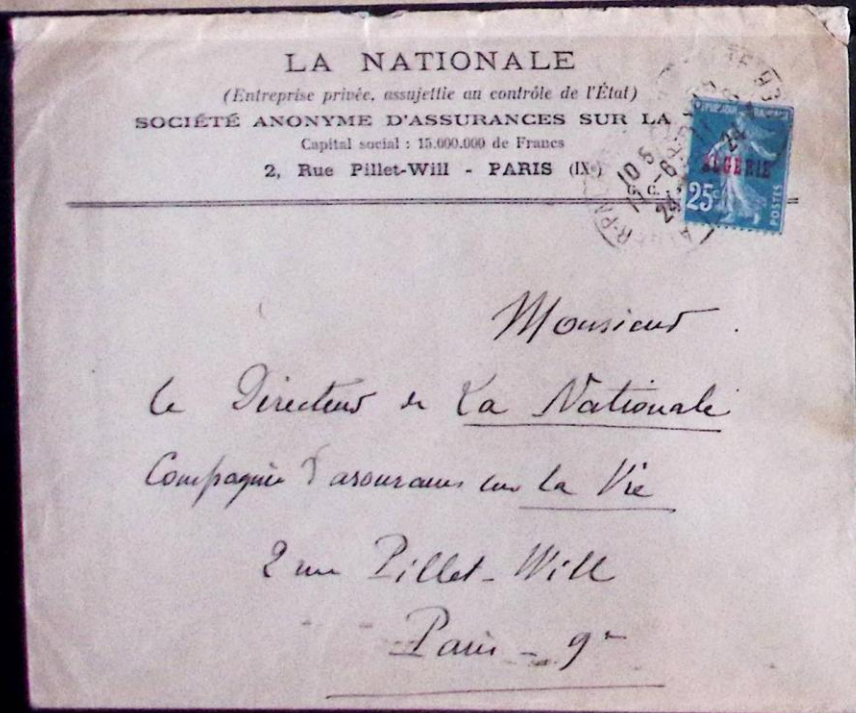 LA NATIONALE
(Entreprise privée, assujettie au contrôle de l'État)
SOCIÉTÉ ANONYME D'ASSURANCES SUR LA
Capital social : 15.000.000 de Francs
2, Rue Pillet-Will - PARIS (IXe)
ALGERIE
25c
POSTES
10 5
11 -6
24
Monsieur
le Directeur de La Nationale
Compagnie d'assurances sur la Vie
2 rue Pillet-Will
Paris - 9e